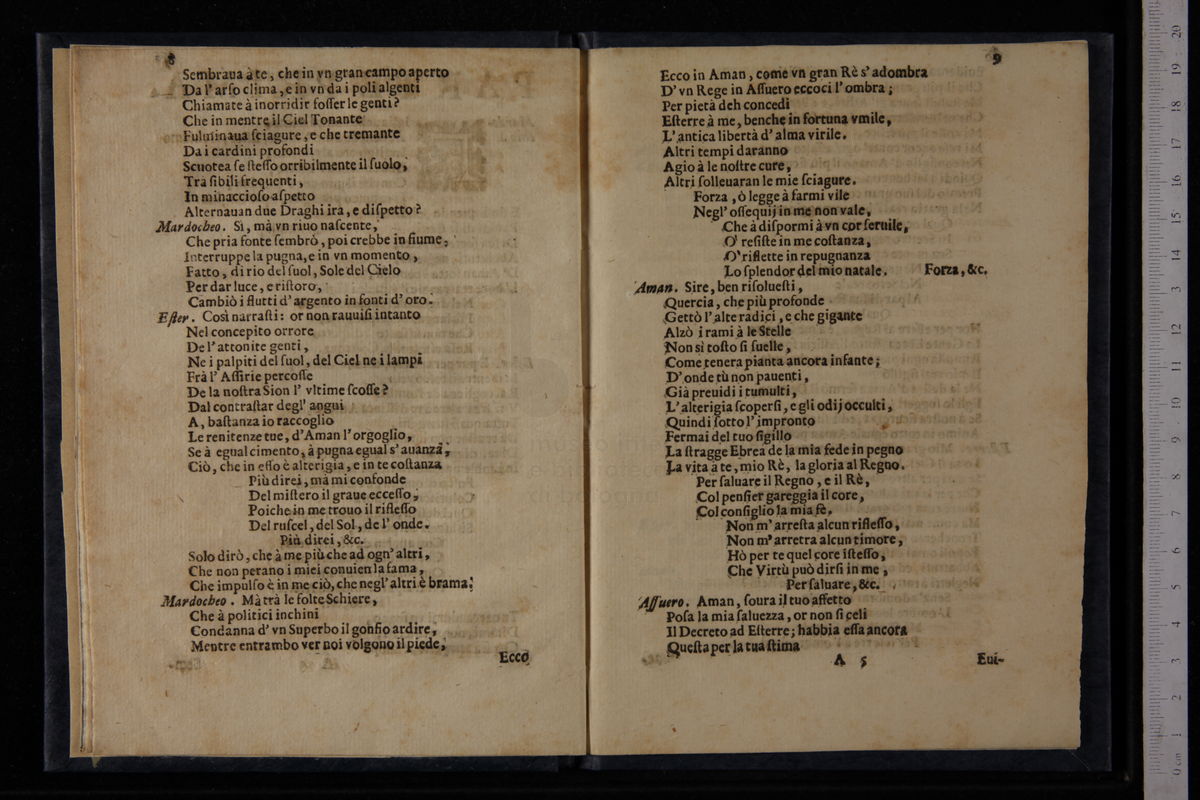 8
Sembraua à te, che in vn gran campo aperto
Da l' arso clima, e in vn da i poli algenti
Chiamate à inorridir fosser le genti?
Che in mentre il Ciel Tonante
Fulminaua sciagure, e che tremante
Da i cardini profondi
Scuotea se stesso orribilmente il suolo,
Trà sibili frequenti,
In minaccioso aspetto
Alternauan due Draghi ira, e dispetto?
Mardocheo. Sì, mà vn riuo nascente,
Che pria fonte sembrò, poi crebbe in fiume,
Interruppe la pugna, e in vn momento,
Fatto, di rio del suol, Sole del Cielo
Per dar luce, e ristoro,
Cambiò i flutti d' argento in fonti d' oro.
Ester. Così narrasti: or non rauuisi intanto
Nel concepito orrore
De l' attonite genti,
Ne i palpiti del suol, del Ciel ne i lampi
Frà l' Assirie percosse
De la nostra Sion l' vltime scosse?
Dal contrastar degl' angui
A, bastanza io raccoglio
Le renitenze tue, d'Aman l' orgoglio,
Se à egual cimento, à pugna egual s' auanza,
Ciò, che in esso è alterigia, e in te costanza
Più direi, mà mi confonde
Del mistero il graue eccesso,
Poiche in me trouo il riflesso
Del ruscel, del Sol, de l' onde.
Più direi, &c.
Solo dirò, che à me più che ad ogn' altri,
Che non perano i miei conuien la fama,
Che impulso è in me ciò, che negl' altri è brama:
Mardocheo. Mà trà le folte Schiere,
Che à politici inchini
Condanna d' vn Superbo il gonfio ardire,
Mentre entrambo ver noi volgono il piede,
Ecco
9
Ecco in Aman, come vn gran Rè s' adombra
D' vn Rege in Assuero eccoci l' ombra;
Per pietà deh concedi
Esterre à me, benche in fortuna vmile,
L' antica libertà d' alma virile.
Altri tempi daranno
Agio à le nostre cure,
Altri solleuaran le mie sciagure.
Forza, ò legge à farmi vile
Negl' ossequij in me non vale,
Che à dispormi à vn cor seruile,
O' resiste in me costanza,
O' riflette in repugnanza
Lo splendor del mio natale. Forza, &c.
Aman. Sire, ben risoluesti,
Quercia, che più profonde
Gettò l' alte radici, e che gigante
Alzò i rami à le Stelle
Non sì tosto si suelle,
Come tenera pianta ancora infante;
D' onde tù non pauenti,
Già preuidi i tumulti,
L' alterigia scopersi, e gli odij occulti,
Quindi sotto l' impronto
Fermai del tuo sigillo
La stragge Ebrea de la mia fede in pegno
La vita à te, mio Rè, la gloria al Regno.
Per saluare il Regno, e il Rè,
Col pensier gareggia il core,
Col consiglio la mia fè.
Non m' arresta alcun riflesso,
Non m' arretra alcun timore,
Hò per te quel core istesso,
Che Virtù può dirsi in me,
Per saluare, &c.
Assuero. Aman, soura il tuo affetto
Posa la mia saluezza, or non si celi
Il Decreto ad Esterre; habbia essa ancora
Questa per la tua stima
A 5
Eui-